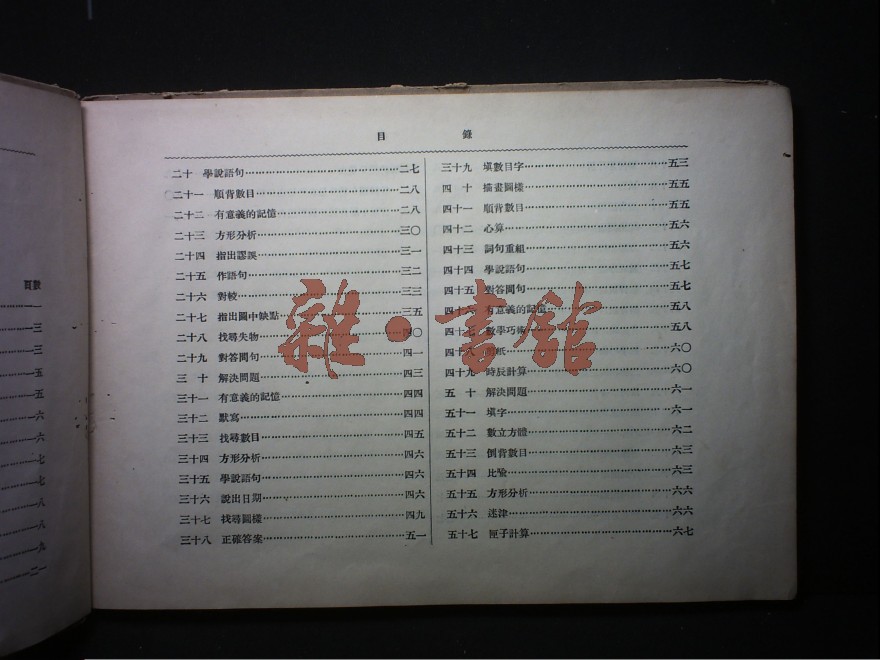 目 錄
二十 學說語句 二七
二十一 順背數目 二八
二十二 有意義的記憶 二八
二十三 方形分析 三〇
二十四 指出謬誤 三一
二十五 作語句 三二
二十六 對較 三三
二十七 指出圖中缺點 三五
二十八 找尋失物 四〇
二十九 對答問句 四一
三十 解決問題 四三
三十一 有意義的記憶 四四
三十二 默寫 四四
三十三 找尋數目 四五
三十四 方形分析 四六
三十五 學說語句 四六
三十六 說出日期 四六
三十七 找尋圖樣 四九
三十八 正確答案 五一
三十九 填數目字 五三
四十 描畫圖樣 五五
四十一 順背數目 五五
四十二 心算 五六
四十三 詞句重組 五六
四十四 學說語句 五七
四十五 對答問句 五七
四十六 有意義的記憶 五八
四十七 數學巧術 五八
四十八 紙 六〇
四十九 時辰計算 六〇
五十 解決問題 六一
五十一 填字 六一
五十二 數立方體 六二
五十三 倒背數目 六三
五十四 比喻 六三
五十五 方形分析 六六
五十六 迷津 六六
五十七 匣子計算 六七
頁數
一
三
三
五
五
六
六
七
七
八
八
九
二一
雜·書館